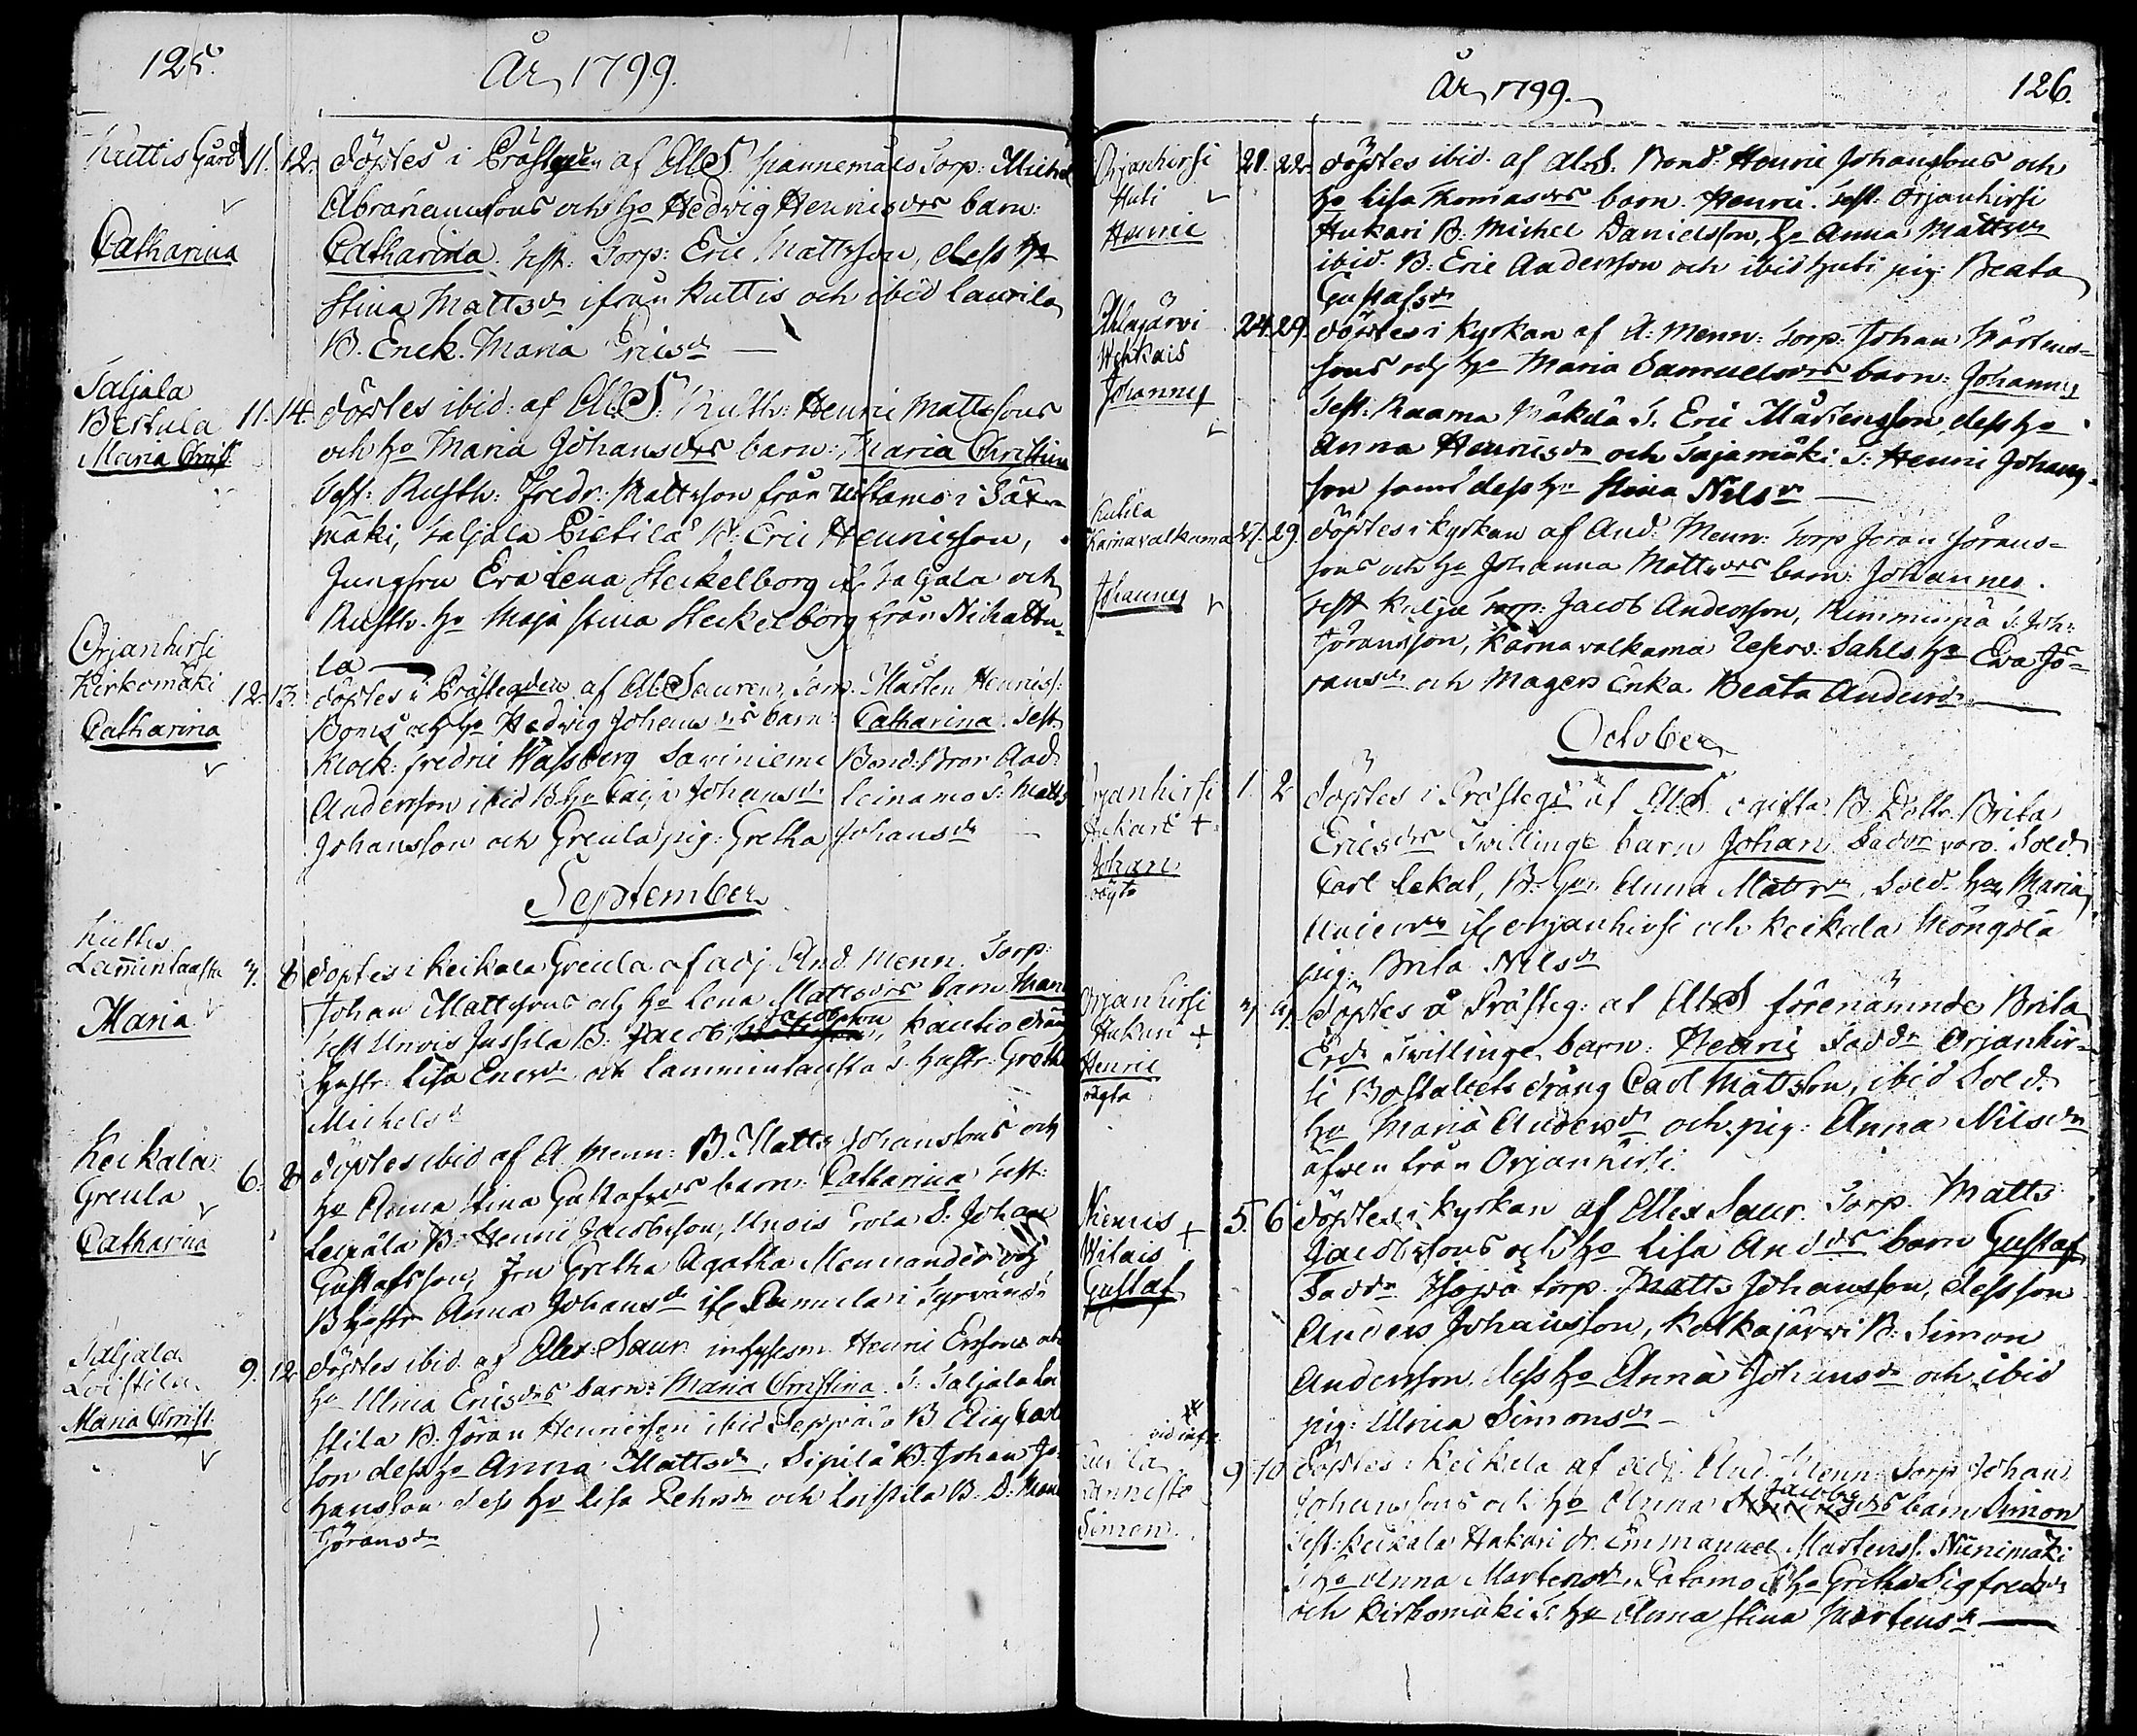 125.
År 1799.
Kuttis Gård 11. 12. döptes i Prästegden af AlbS. Torp: Michel
Abrahamsons och Ho Hedvig Henricsdrs barn:
Catharina
Catharina. Test: Torp: Eric Mattsson, dess Ho
Stina Mattsdr ifrån Kuttis och ibid Laurila
B. Enck. Maria Ericsdr —
Taljala
Bertula 11. 14. döptes ibid: af AlbS: Rusth: Henric Mattssons
Maria Christ
och Ho Maria Johansdrs barn: Maria Christina
Test: Rusth: Fredr: Mattsson från Uittamo i Säx-
mäki, Taljala Pietilä B: Eric Henricsson,
Jungfru Eva Lena Steckelborg if Taljala och
Rusth. Ho Maja Stina Steckelborg från Nihattu-
la —
Orjanhirsi
Kirkomäki 12. 13. döptes i Prästegden af Alb Sauren, Torp. Mårten Henricss:
Catharina
och Ho Hedvig Johansdrs barn: Catharina. Test
Klock: Fredric Wassberg Saviniemi Bond: Bror And
Andersson ibid B Ho Caisa Johansdr Leinamo T: Matts
Johansson och Greula pig: Gretha Johansdr
September
Kuttis
Lammintausta 7. 8 döptes i Keikala Greula af adj. And. Menn. Torp:
Johan Mattssons och Ho Lena Mattsdrs barn Maria
Maria
Test Unois Jussila B: Jacob Jacobsson, Kautio dräng
Hustr: Lisa Ericsdr och Lamminlausta T. Hustr: Gretha
Michelsdr
Keikala
Greula 6. 8 döptes ibid af A. Menn: B. Matts Johanssons och
Catharina
Ho Anna Stina Gustafsdrs barn: Catharina Test:
B: Henric Jacobsson, Unois S: Johan
Gustafsson, Jfru Gretha Agatha Mennander och
B Hustr Anna Johansdr if Pamula i Tyrvändä
Taljala
Loistila 9. 12 döptes ibid. af Alex: Saur. inhysesm. Henric Erssons och
Maria Christ.
Ho Ulrica Ericsdrs barn: Maria Christina. T: Taljala Loi
stila B: Jöran Henricsson ibid Seppälä B Elias Carl
son dess Ho Anna Mattsdr, Sipilä B. Johan Jo-
hansson dess Ho Lisa Pehrsdr och Loistila B. D: Maria
Göransdr
År 1799.
126.
Orjanhirsi
Huti
Henric
21. 22. döptes ibid. af AlbS. Bond: Henric Johanssons och
Ho Lisa Thomasdrs barn: Henric. Test: Orjanhirsi
Hukari B: Michel Danielsson, Ho Anna Mattsdr
ibid. B: Eric Andersson och ibid Huti pig: Beata
Gustafsdr
Ahlajärvi
Wehkais
Johannes
24. 29. döptes i Kyrkan af A: Menn: Torp: Johan Mårtens-
sons och Ho Maria Samuelsdrs barn: Johannes
Test: Raama Mäkelä T. Eric Mårtensson, dess Ho
Anna Henricsdr och Sajamäki T: Henric Johans-
son samt dess Ho Stina Nilsdr —
Kutila
Karnavalkama
Johannes
27. 29. döptes i Kyrkan af And. Menn: Torp Jöran Jörans-
sons och Ho Johanna Mattsdrs barn: Johannes.
Test Kulju Torp: Jacob Andersson, Rimminpä T: Joh:
Jöransson, Karnavalkama Reserv: Sahls Ho Eva Jö-
ransdr och Magers Enka Beata Andersdr —
October
Orjanhirsi
Hukari +
Johan
oägta
1. 2 döptes i Prästegd af AlbS. ogifta B. Dottr Brita
Ericsdrs Twillinge barn Johan Faddr voro: Sold.
Carl Lekal, B: Ho Anna Mattsdr, Sold. Ho Maria
if Orjanhirsi och Keikala Möngölä
pig: Brita Nilsdr
Orjanhirsi
Hukari +
Henric
oägta
döptes å Prästeg: af AlbS förenämnde Brita
Ersdr Twillinge barn: Henric Faddr Orjanhir-
si Bostallets dräng Carl Mattsson, ibid Sold.
Ho Maria Andersdr och pig: Anna Nilsdr
äfven från Orjanhirsi.
+
Gustaf
5. 6 döptes i Kyrkan af Alex Saur. Torp. Matts
Jacobssons och Ho Lisa Anddrs barn Gustaf
Faddr Torp. Matts Johansson, dess son
Anders Johansson, Kolkajärvi B: Simon
Andersson dess Ho Anna Johansdr och ibid
pig: Ulrica Simonsdr —
Simon
9. 10 döptes i Keikala af adj. And. Menn: Torp Johan
Johanssons och Ho Anna Jacobsdrs barn Simon
Test: Keikala Hukari dr. Emmanuel Mårtenss. Niinimäki
T Ho Anna Mårtensdr, Salamo T Ho Gretha Sigfredsdr
och Kirkomäki T: Ho Anna Stina Mårtensdr —